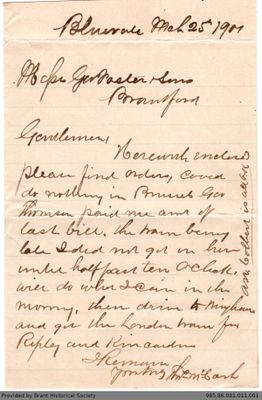 Bluevale Mch 25 1901
Messrs Geo Foster & Sons
Brantford
Gentlemen
Herewith enclosed
please find orders, could
do nothing in Brussels Geo
Thomson paid me amt of
last bill, the train being
late I did not get on here
until half past ten O'Clock,
will do what I can in the
morning, then drive to Wingham
and get the London train for
Ripley and Kincardine
I Remain
Yours truly
McCash
is all right
Provided by Brant Historical Society
985.86.081.011.001